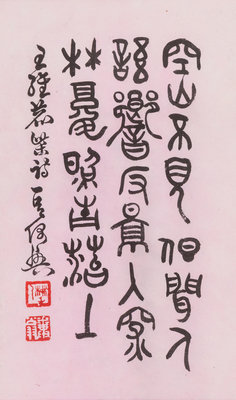 空山不見但聞人
語響反景入深
林復照青苔上
王維鹿柴詩